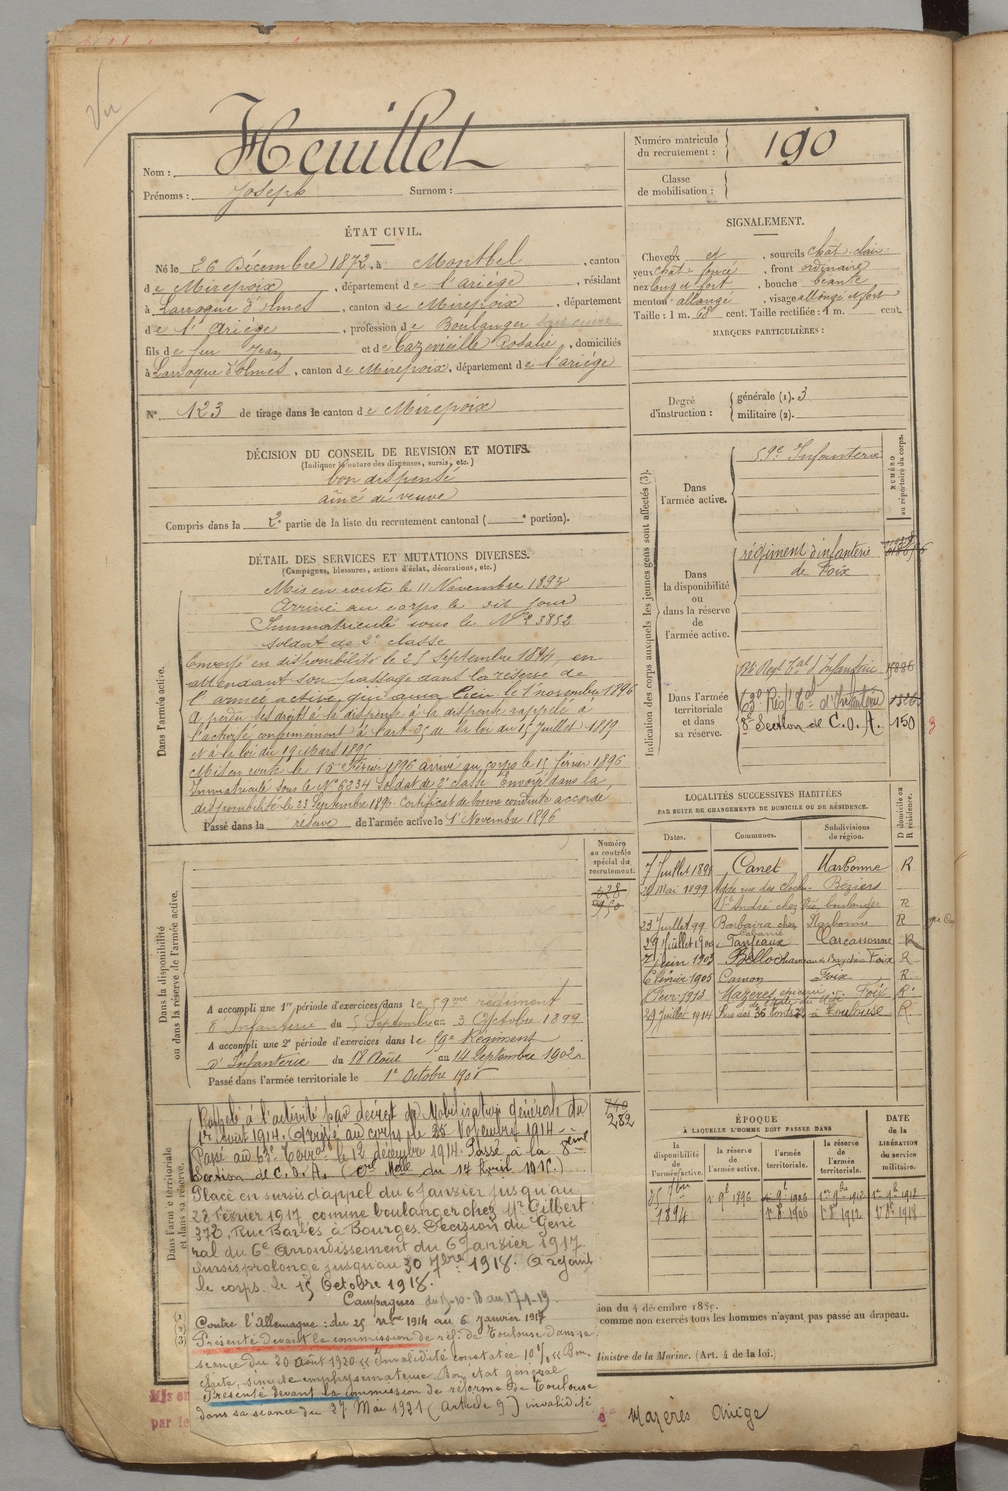 Vu
Heuillet
Nom :
Prénoms : Joseph Surnom :
Numéro matricule du recrutement : 190
Classe de mobilisation :
ÉTAT CIVIL.
Né le 26 Décembre 1872, à Montbel, canton
de Mirepoix, département de l'ariége, résidant
à Larroque d'olmes, canton de Mirepoix, département
de l'Ariége, profession de Boulanger
fils de feu Jean et de Cazevieille Rosalie, domiciliés
à Larroque d'olmes, canton de Mirepoix, département de l'ariége
N° 123 de tirage dans le canton de Mirepoix
SIGNALEMENT.
Cheveux et, sourcils chat. clair
yeux chat foncé, front ordinaire
nez long et fort, bouche béante
menton allongé, visage allongé et fort
Taille : 1 m. 68 cent. Taille rectifiée : 1 m. cent.
MARQUES PARTICULIÈRES :
Degré d'instruction : générale (1). 3
militaire (2).
DÉCISION DU CONSEIL DE REVISION ET MOTIFS.
(Indiquer la nature des dispenses, sursis, etc.)
bon dispensé
aîné de veuve
Compris dans la 2e partie de la liste du recrutement cantonal ( e portion).
DÉTAIL DES SERVICES ET MUTATIONS DIVERSES.
(Campagnes, blessures, actions d'éclat, décorations, etc.)
Dans l'armée active.
Mis en route le 11 Novembre 1893
Arrivé au corps le dit jour
Immatriculé sous le N° 3852
soldat de 2e classe
Envoyé en disponibilité le 25 Septembre 1894, en
attendant son passage dans la réserve de
l'armée active, qui aura lieu le 1er novembre 1896
A perdu ses droits à la dispense à la dispense rappelé à
l'activité conformément à l'art. 25 de la loi du 15 Juillet 1889
et à la loi du 19 Mars 1895
Mis en route le 15 Février 1896 arrivé au corps le 15 février 1896
Immatriculé sous le N° 6334 Soldat de 2e classe Envoyé dans la
disponibilité le 23 Septembre 1896. Certificat de bonne conduite accordé
Passé dans la réserve de l'armée active le 1er Novembre 1896
Indication des corps auxquels les jeunes gens sont affectés (3).
NUMÉRO au répertoire du corps.
Dans l'armée active.
59e Infanterie
Dans la disponibilité ou dans la réserve de l'armée active.
régiment d'infanterie
de Foix
Dans l'armée territoriale et dans sa réserve.
Regt Tal d'Infanterie
63e Regt Tal d'Infanterie
8e Section de C. O. A. 150
3
LOCALITÉS SUCCESSIVES HABITÉES
PAR SUITE DE CHANGEMENTS DE DOMICILE OU DE RÉSIDENCE.
Dates. Communes. Subdivisions de région. D domicile ou R résidence.
7 Juillet 1898 Canet Narbonne R
29 Mai 1899 Agde rue des Béziers
St André chez boulanger R
23 Juillet 99 Barbaira chez Cabanié Narbonne R
29 Juillet 1900 Fanjeaux Carcassonne R
7 juin 1903 Belloc Foix R
6 février 1905 Camon Foix R
Févr 1913 Mazeres Foix R
29 Juillet 1914 Rue des 36 ponts à Toulouse R
Dans la disponibilité ou dans la réserve de l'armée active.
Numéro au contrôle spécial du recrutement.
628
950
A accompli une 1re période d'exercices dans le 59me régiment
d'Infanterie du 5 Septembre au 3 Octobre 1899
A accompli une 2e période d'exercices dans le 59e Régiment
d'Infanterie du 18 Août au 14 Septembre 1902
Passé dans l'armée territoriale le 1er Octobre 1906
Dans l'armée territoriale et dans sa réserve.
740
282
Rappelé à l'activité par décret de Mobilisation générale du
1er août 1914. Arrivé au corps le 25 Novembre 1914.
Passé au 63e Terral le 12 décembre 1914. Passé à la 8ème
Section de C. O. A. (Ore Mle du 17 Avril 1915.)
Placé en sursis d'appel du 6 Janvier jusqu'au
28 Février 1917 comme boulanger chez Mr Gilbert
37B, Rue Barbès à Bourges. Décision du Géné
ral du 6e Arrondissement du 6 Janvier 1917
Sursis prolongé jusqu'au 30 7bre 1918. A rejoint
le corps le 15 Octobre 1918.
Campagnes du 15-10-18 au 17-1-19
Contre l'Allemagne : du 25 Nbre 1914 au 6 Janvier 1917
Présenté devant la commission de réf. de Toulouse dans sa
séance du 20 Août 1920 « Invalidité constatée 10 % « Bron-
chite, emphysémateuse. Bon état général
Présenté devant la commission de réforme de Toulouse
dans sa séance du 27 Mai 1921 (Article 9) invalidité
ÉPOQUE
À LAQUELLE L'HOMME DOIT PASSER DANS
la disponibilité de l'armée active. la réserve de l'armée active. l'armée territoriale. la réserve de l'armée territoriale.
DATE de la LIBÉRATION du service militaire.
25 7bre 1894 1er 9b 1896 1er 9b 1906 1er 9b 1912 1er 9b 1918
1er 8b 1906 1er 8b 1912 1er 8b 1918
(1)
(2)
(3)
ion du 4 décembre 1889.
comme non exercés tous les hommes n'ayant pas passé au drapeau.
Ministre de la Marine. (Art. 4 de la loi.)
Mis en
par le
Mazères Ariège